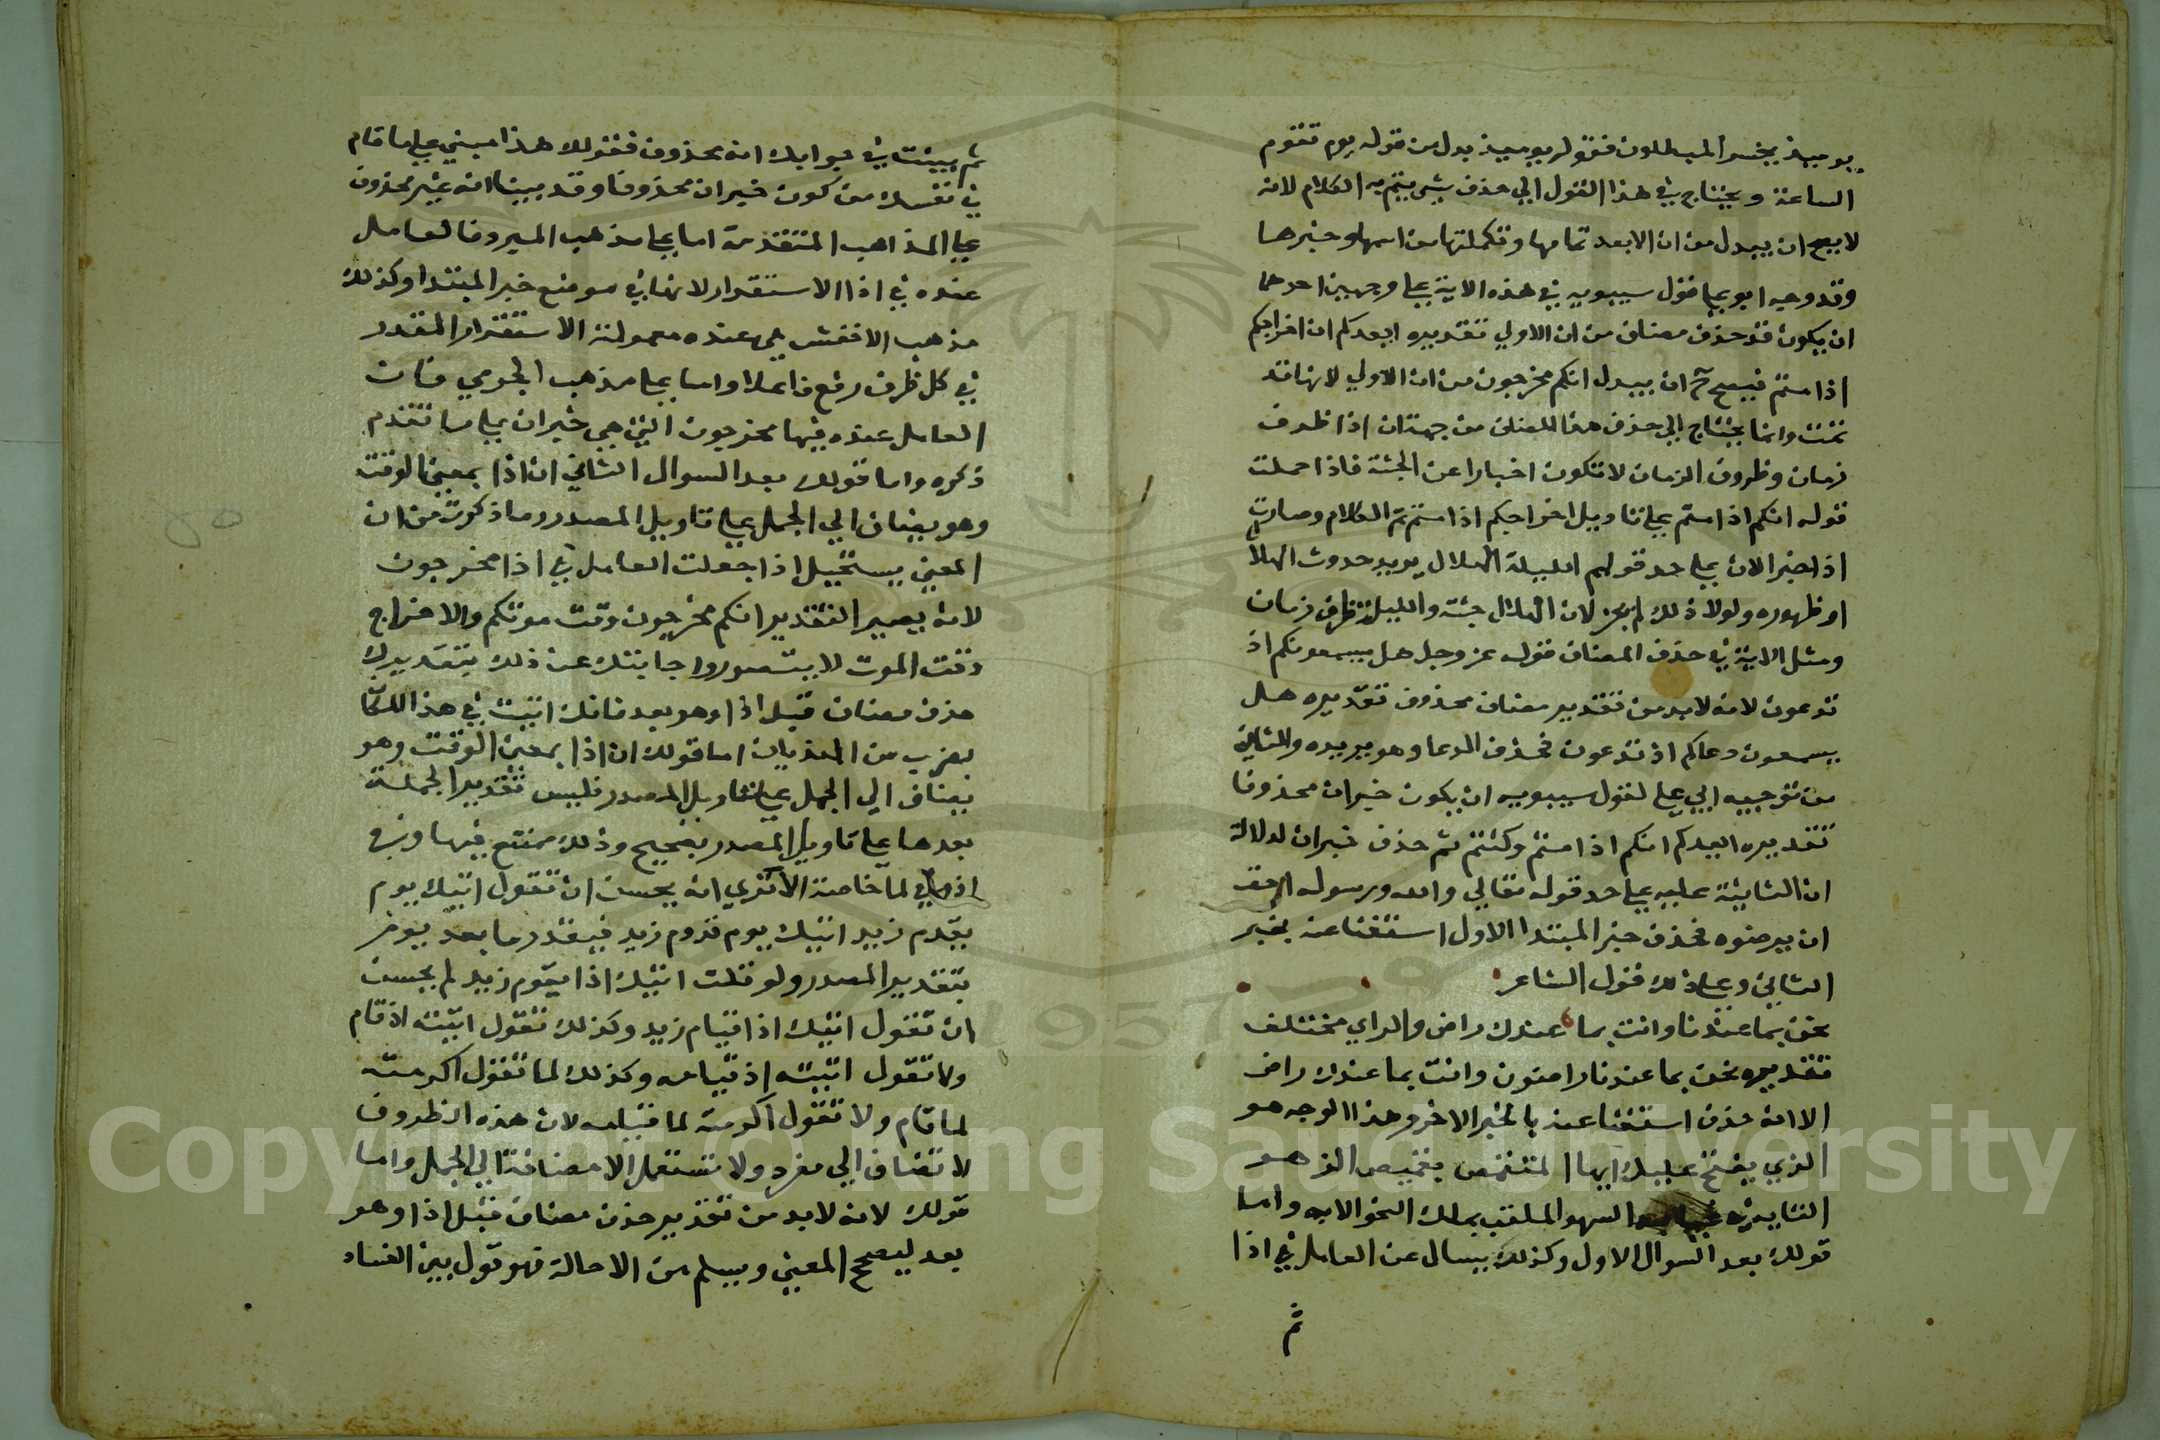 يوميذ يخسر المبطلون فنقول يوميذ بدل من قوله يوم تقوم
الساعة ويحتاج في هذا القول الي حذف شي يتم به الكلام لانه
لا يصح ان يبدل من ان الا بعد تمامها وتكملتها من اسمها وخبرها
وقد وجه ابو علي قول سيبويه في هذه الاية علي وجهين احدهما
ان يكون قد حذف مضاف من ان الاولي تقديره ايعدكم ان اخراجكم
اذا متم فيصح ان يبدل انكم مخرجون من ان الاولي لانها قد
تمت وانما يحتاج الي حذف هذا المضاف من جهة ان اذا ظرف
زمان وظروف الزمان لا تكون اخبارا عن الجثة فاذا حملت
قوله انكم اذا متم علي تاويل اخراجكم اذا متم تم الكلام وصارت
اذا خبر الان علي حد قولهم الليلة الهلال يريد حدوث الهلال
او ظهوره ولولا ذلك لم يجز لان الهلال جثة والليلة ظرف زمان
ومثل الاية في حذف المضاف قوله عز وجل هل يسمعونكم اذ
تدعون لانه لابد من تقدير مضاف محذوف تقديره هل
يسمعون دعاكم اذ تدعون فحذف الدعا وهو يريده والثاني
من توجيه ابي علي لقول سيبويه ان يكون خبر ان محذوفا
تقديره ايعدكم انكم اذا متم وكنتم ثم حذف خبر ان لدلالة
ان الثانية عليه علي حد قوله تعالي والله ورسوله احق
ان يرضوه فحذف خبر المبتدا الاول استغنا عنه بخبر
الثاني وعلي ذلك قول الشاعر
نحن بما عندنا وانت بما عندك راض والراي مختلف
تقديره نحن بما عندنا راضون وانت بما عندك راض
الا انه حذف استغنا عنه بالخبر الاخر وهذا الوجه هو
الذي يفتح عليك ايها المتقمص بقميص الزهو
التايه في السهو الملقب بملك النحو الابه واما
قولك بعد السوال الاول وكذلك يسال عن العامل في اذا
ثم
ثم بينت في جوابك انه محذوف فقولك هذا مبني علي ما قام
في نفسك من كون خبر ان محذوفا وقد بينا انه غير محذوف
علي المذاهب المتقدمة اما علي مذهب المبرد فالعامل
عنده في اذا الاستقرار لانها في موضع خبر المبتدا وكذلك
مذهب الاخفش هي عنده معمولة الاستقرار المقدر
في كل ظرف رفع فاعلا واما علي مذهب الجرمي فان
العامل عنده فيها مخرجون التي هي خبر ان علي ما تقدم
ذكره واما قولك بعد السوال الثاني ان اذا بمعني الوقت
وهو يضاف الي الجمل علي تاويل المصدر وما ذكرت من ان
المعني يستحيل اذا جعلت العامل في اذا مخرجون
لانه يصير التقدير انكم مخرجون وقت موتكم والاخراج
وقت الموت لا يتصور واجابتك عن ذلك بتقديرك
حذف مضاف قبل اذا وهو بعد فانك اتيت في هذا الكلام
بضرب من الهذيان اما قولك ان اذا بمعني الوقت وهو
يضاف الي الجمل علي تاويل المصدر فليس تقدير الجملة
بعدها علي تاويل المصدر بصحيح وذلك ممتنع فيها وفي
اذ وفي لما خاصة الا تري انه يحسن ان تقول اتيك يوم
يقدم زيد اتيك يوم قدوم زيد فيقدر ما بعد يوم
بتقدير المصدر ولو قلت اتيك اذا يقوم زيد لم يحسن
ان تقول اتيك اذا قيام زيد وكذلك تقول اتيته اذ قام
ولا تقول اتيته اذ قيامه وكذلك لما تقول اكرمته
لما قام ولا تقول اكرمته لما قيامه لان هذه الظروف
لا تضاف الي مفرد ولا تستعمل الا مضافة الي الجمل واما
قولك لانه لابد من تقدير حذف مضاف قبل اذا وهو
بعد ليصح المعني ويسلم من الاحالة فهو قول بين الفساد
Copyright © King Saud University
1957